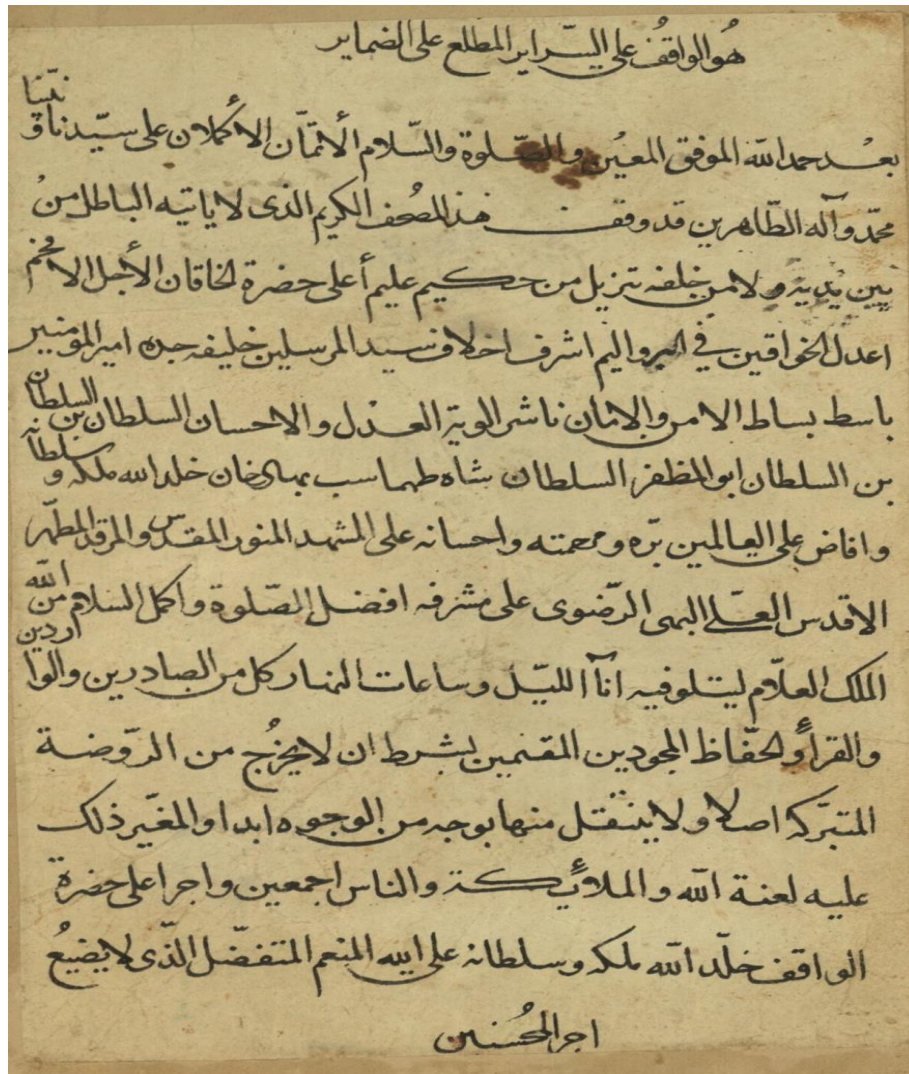 هُو الواقفُ علي السّراير المطلع علی الضماير
بعْد حمد الله الموفق المعيْن والصّلوة والسّلام الأتمّان الأکملان علی سيّدنا و نبيّنا
محمّد وآله الطّاهرين قد وقف هذا المصُحف الکريم الذی لا ياتيه الباطل منُ
بين يْديه ولا من خلفه تنزيل من حکيم عليم أعلی حضرة الخاقان الأجل الافخم
اعدل الخواقين في البر واليم اشرف اخلاف سيد المرسلين خليفه جده امير المومنير
باسط بساط الامن والامان ناشر الوية العدل و الاحسان السلطان بن السلطان
بن السلطان ابو المظفر السلطان شاه طهماسب بهادرخان خلد الله ملکه و سلطانه
و افاض علی العالمين برّه و مرحمته و احسانه علی المشهد المنور المقدس والمرقد المطهّر
الاقدس العلّي البهی الرّضوی علی مشرفه افضل الصّلوة و اکمل السلام من الله
الملك العلّام ليتلو فيه انآ الليّل و ساعات النهار کل من الصادرين والواردين
والقراءِ والحفّاظ المجودين المقيمين بشرط ان لا يخرُج من الرّوضة
المتبرّکه اصلا و لا ينتقل منها بوجه من الوجوه ابدا و المغيّر ذلک
عليه لعنة الله و الملائکة والناس اجمعين و اجرا علی حضرة
الواقف خلّد الله ملکه وسلطانه علی الله المنعم المتفضّل الذّی لا يضيعُ
اجر المحُسنين